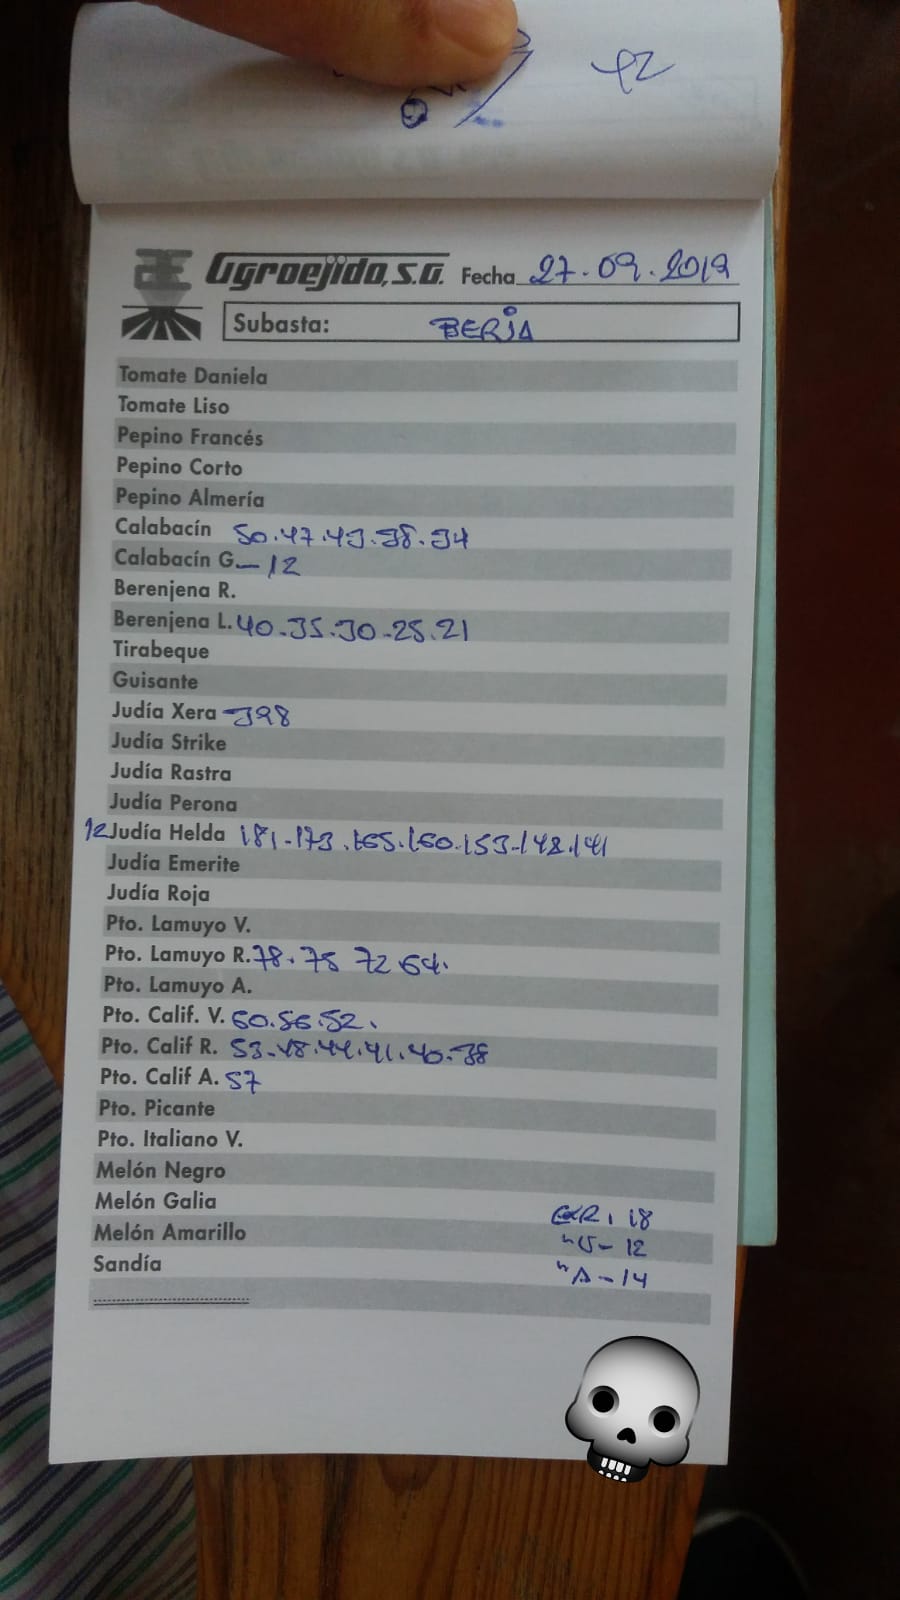 42
Agroejido, S.A. Fecha 27.09.2019
Subasta: BERJA
Tomate Daniela
Tomate Liso
Pepino Francés
Pepino Corto
Pepino Almería
Calabacín 50.47.43.38.34
Calabacín G. - 12
Berenjena R.
Berenjena L. 40-35.30-25.21
Tirabeque
Guisante
Judía Xera - 398
Judía Strike
Judía Rastra
Judía Perona
12 Judía Helda 181-173.165.160.153-148.141
Judía Emerite
Judía Roja
Pto. Lamuyo V.
Pto. Lamuyo R. 78.75 72 64.
Pto. Lamuyo A.
Pto. Calif. V. 60.56.52.
Pto. Calif R. 53-48.44.41.40.38
Pto. Calif A. 57
Pto. Picante
Pto. Italiano V.
Melón Negro
Melón Galia
GR. 18
Melón Amarillo
" V - 12
Sandía
" A - 14